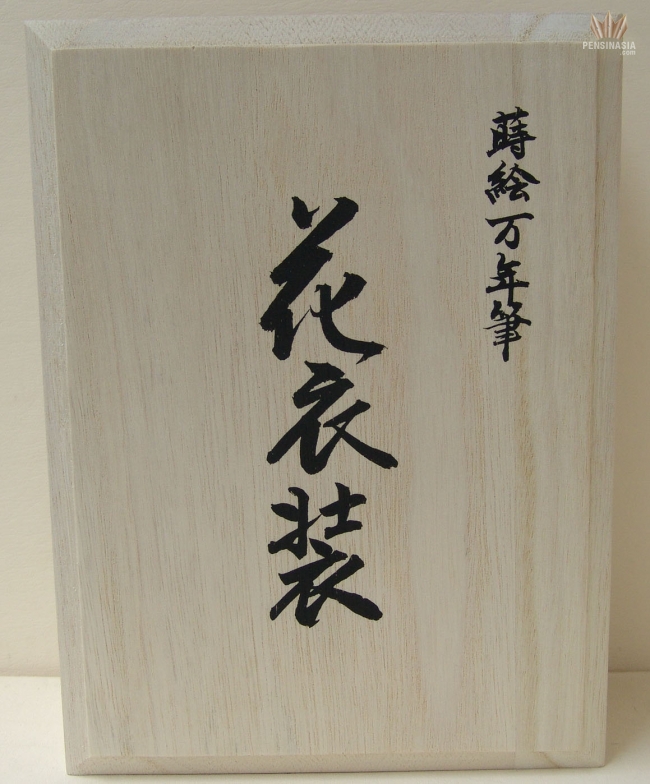 蒔絵万年筆
花衣装
PENSINASIA
.com